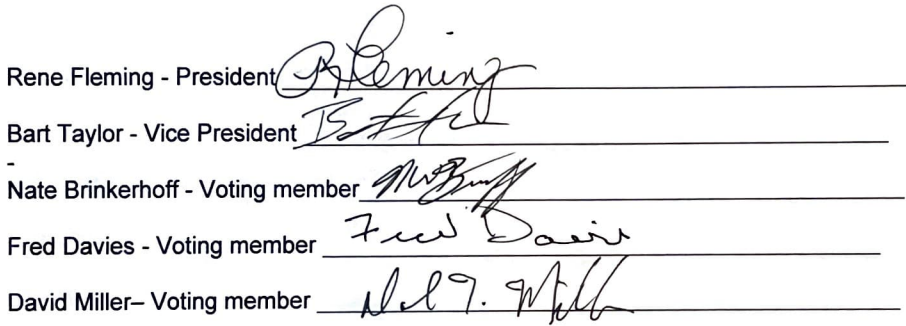 Rene Fleming - President RFleming
Bart Taylor - Vice President
-
Nate Brinkerhoff - Voting member
Fred Davies - Voting member Fred Davies
David Miller– Voting member